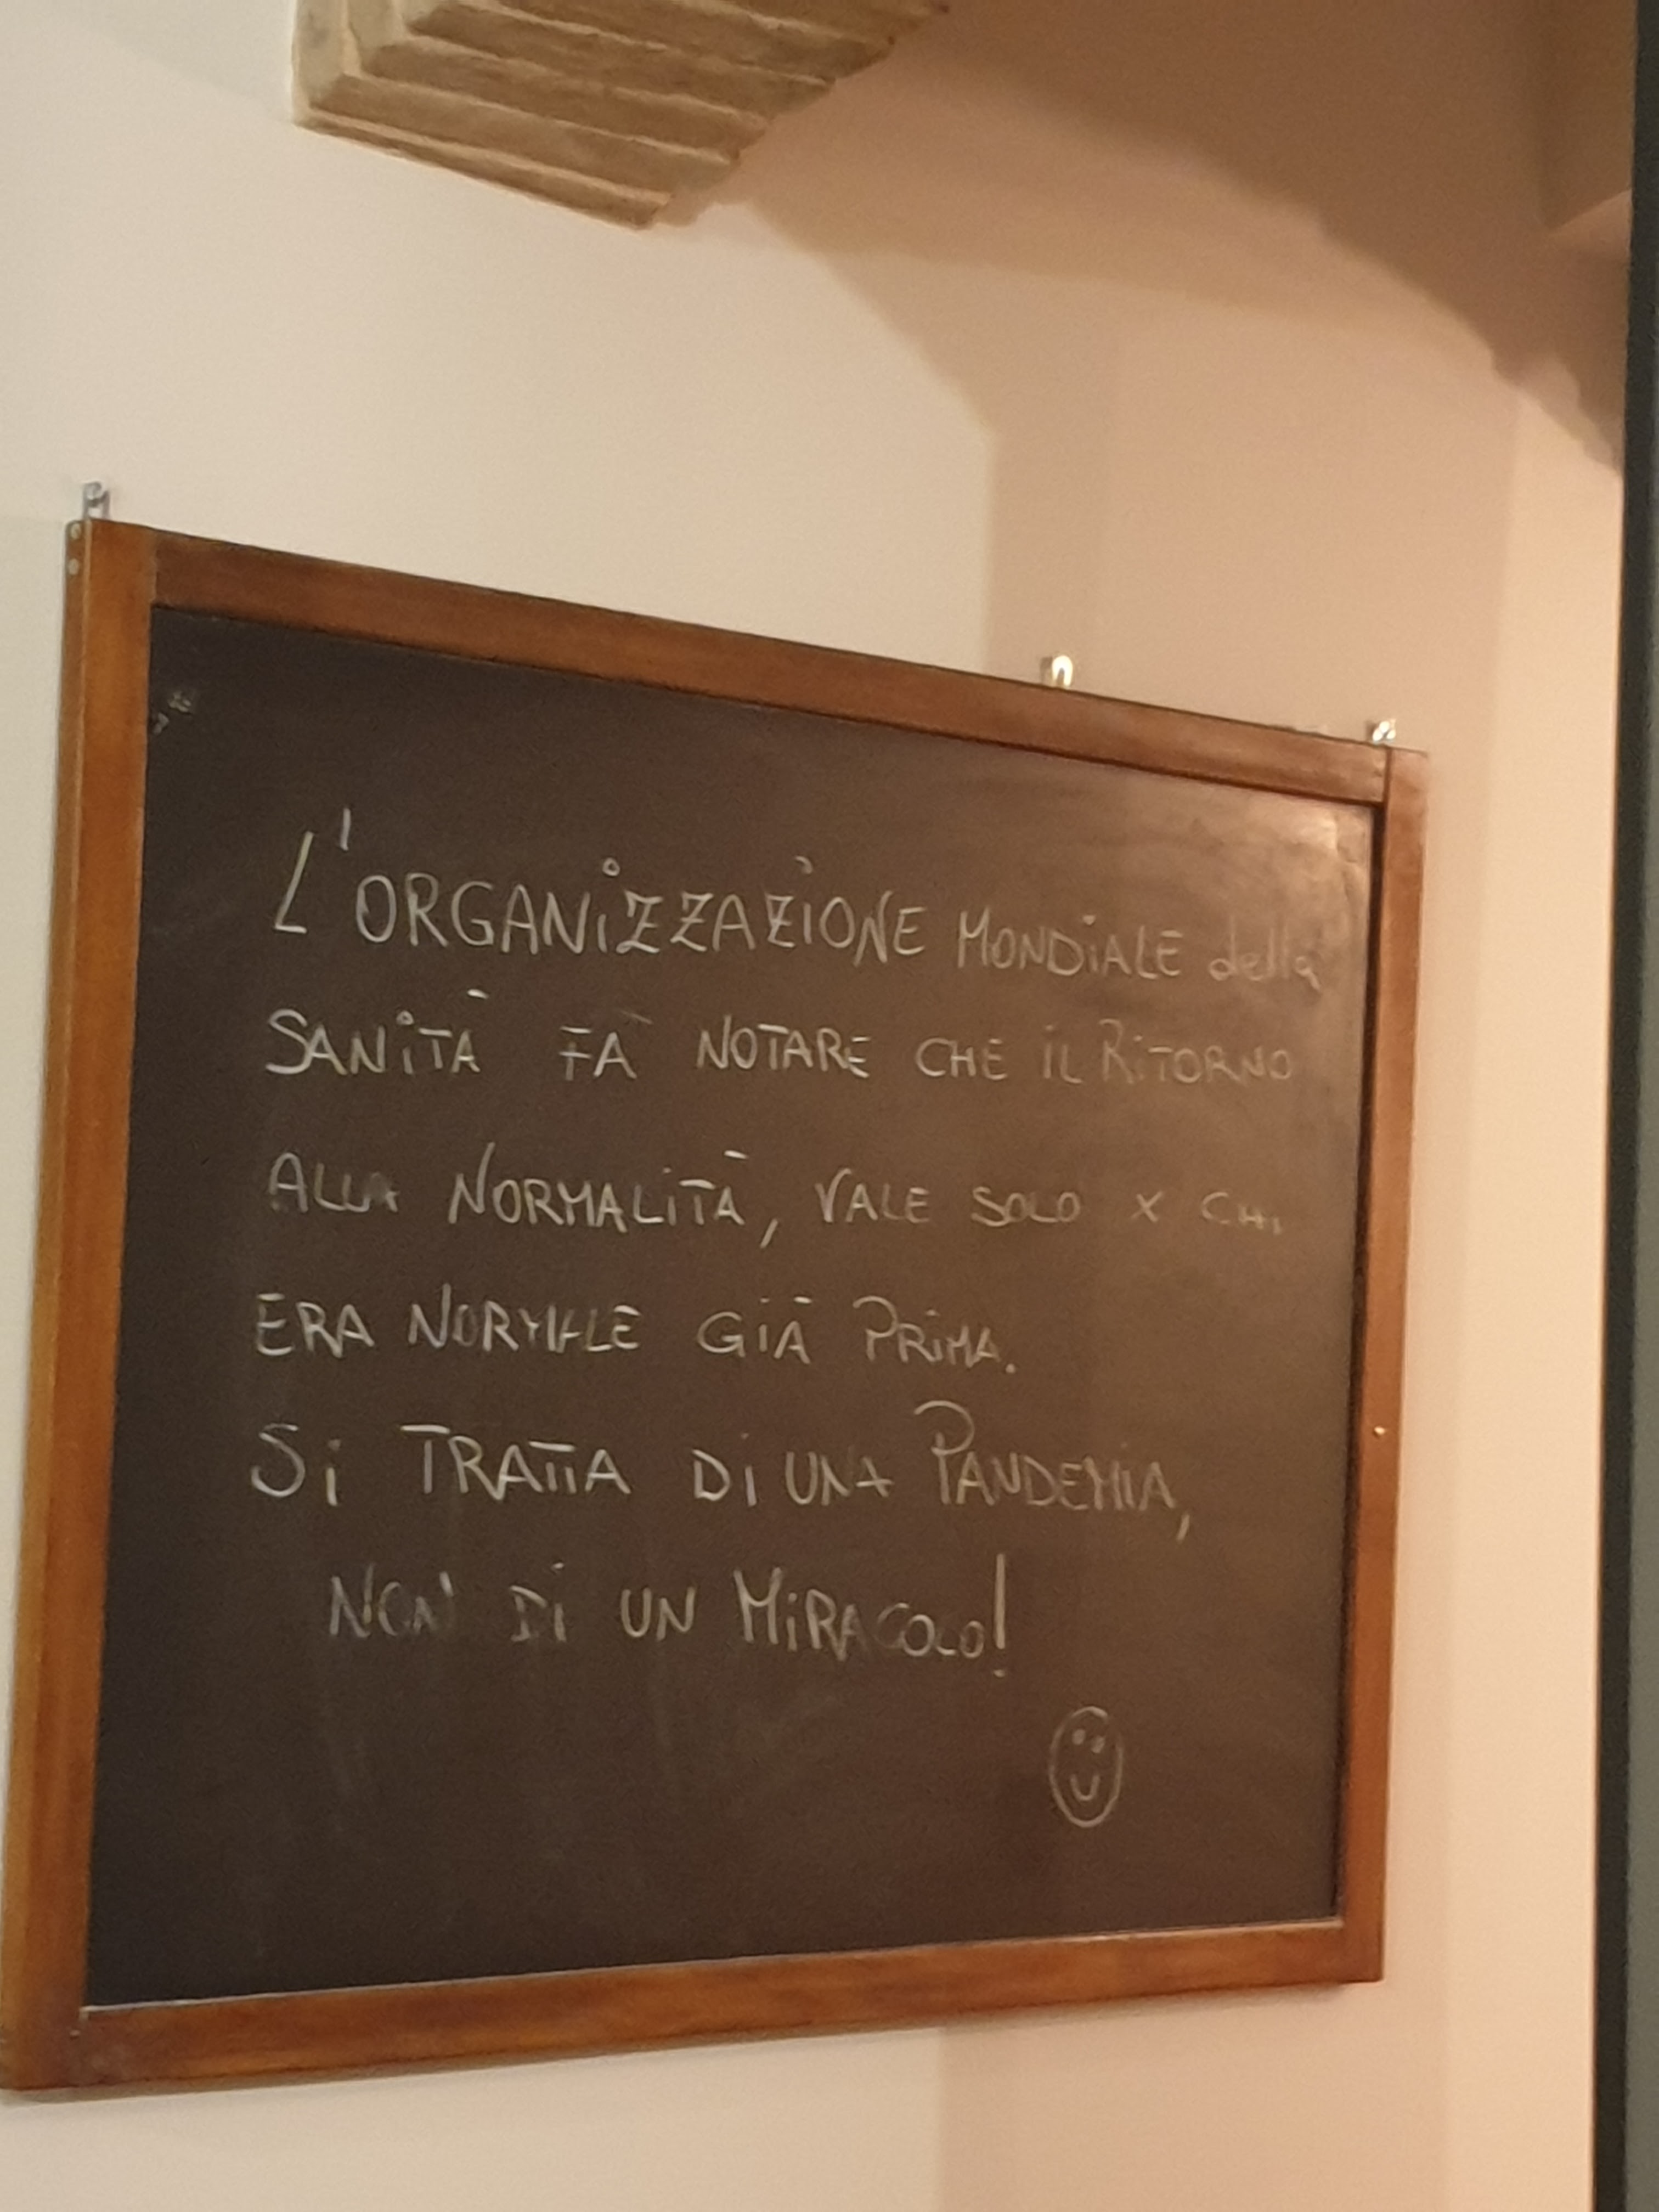 L'ORGANIZZAZIONE MONDIALE della
SANITÀ FA NOTARE CHE IL RITORNO
ALLA NORMALITÀ, VALE SOLO X CHI
ERA NORMALE GIÀ PRIMA.
Si TRATTA Di UNA PANDEMIA,
NON DI UN MIRACOLO!